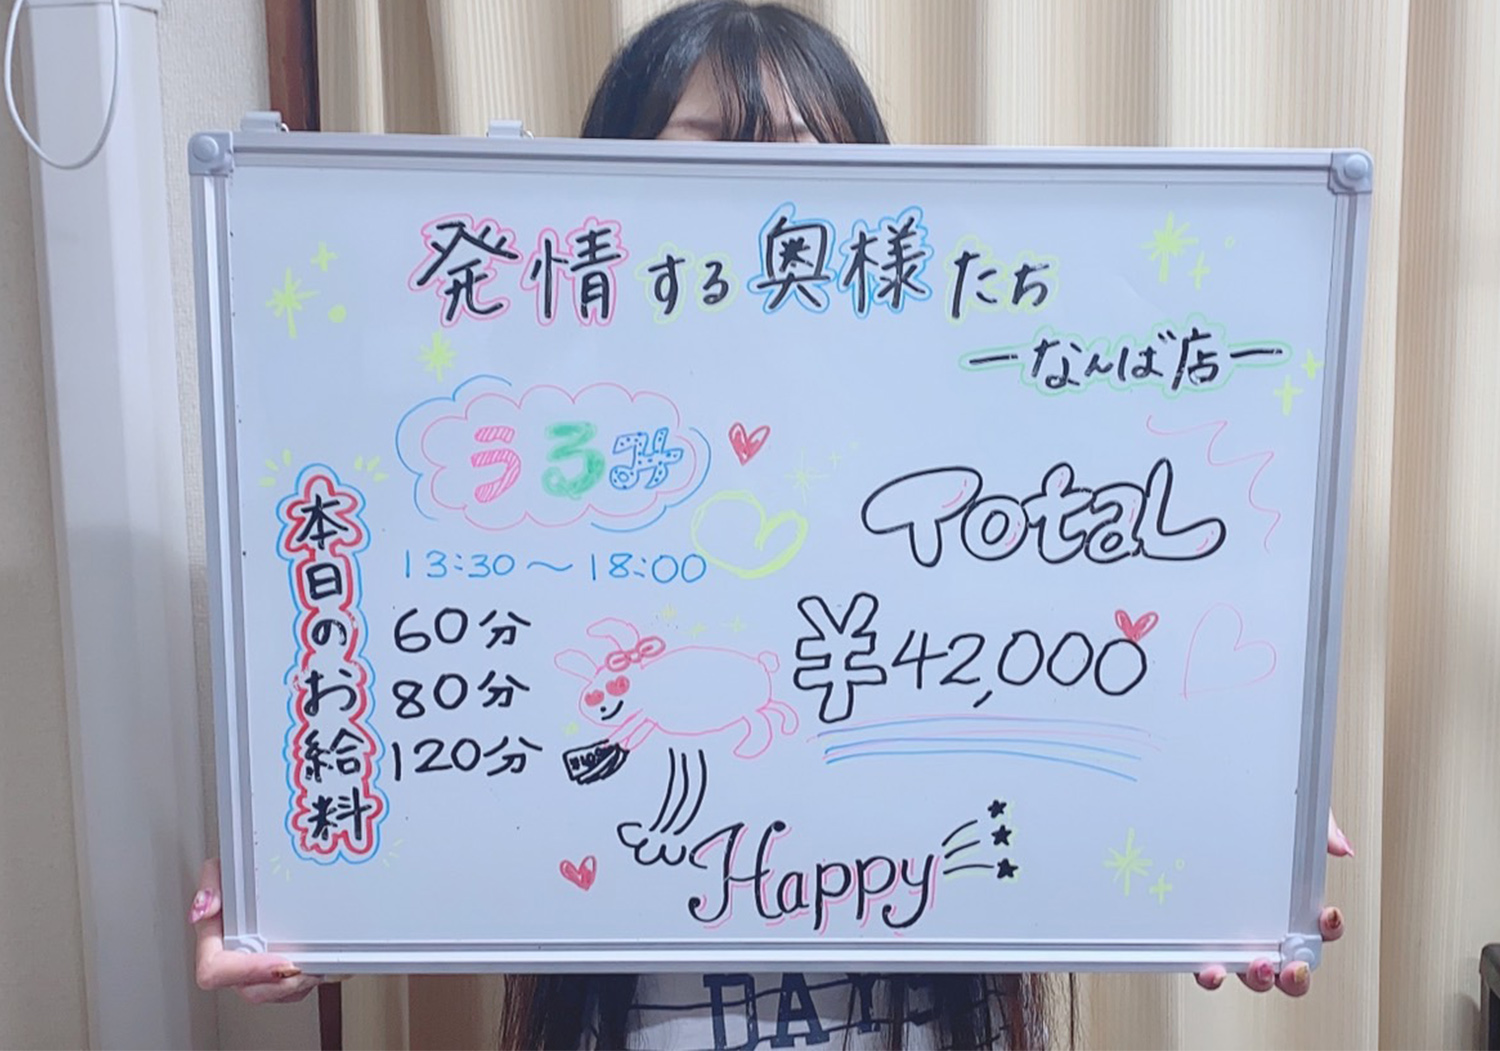 発情する奥様たち
ーなんば店ー
うるみ
13:30～18:00
本日のお給料
60分
80分
120分
Total
¥42,000
Happy
DAY